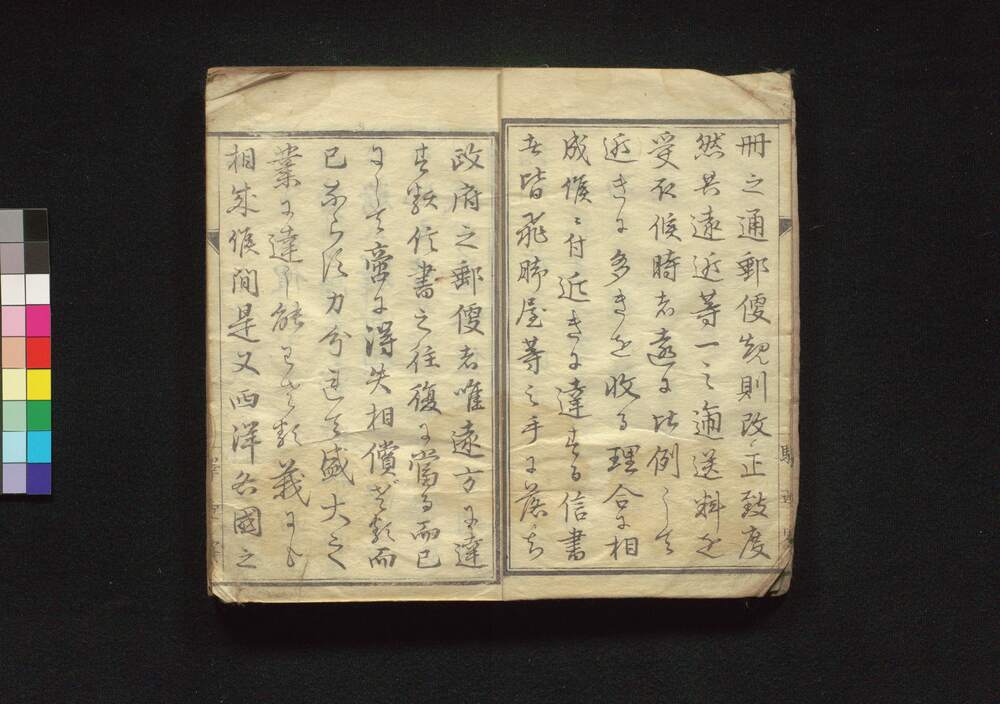 冊之通郵便規則改正致度
然共遠近等一之逓送料を
受取候時者遠に比例して
近きに多きを收る理合に相
成候ニ付近きに達する信書
者皆飛脚屋等之手に落ち
政府之郵便者唯遠方に達
する信書之往復に當る而已
にして啻に得失相償ざる而
已ならず力分れて盛大之
業に達し能わざる義にも
相成候間是又西洋各國之